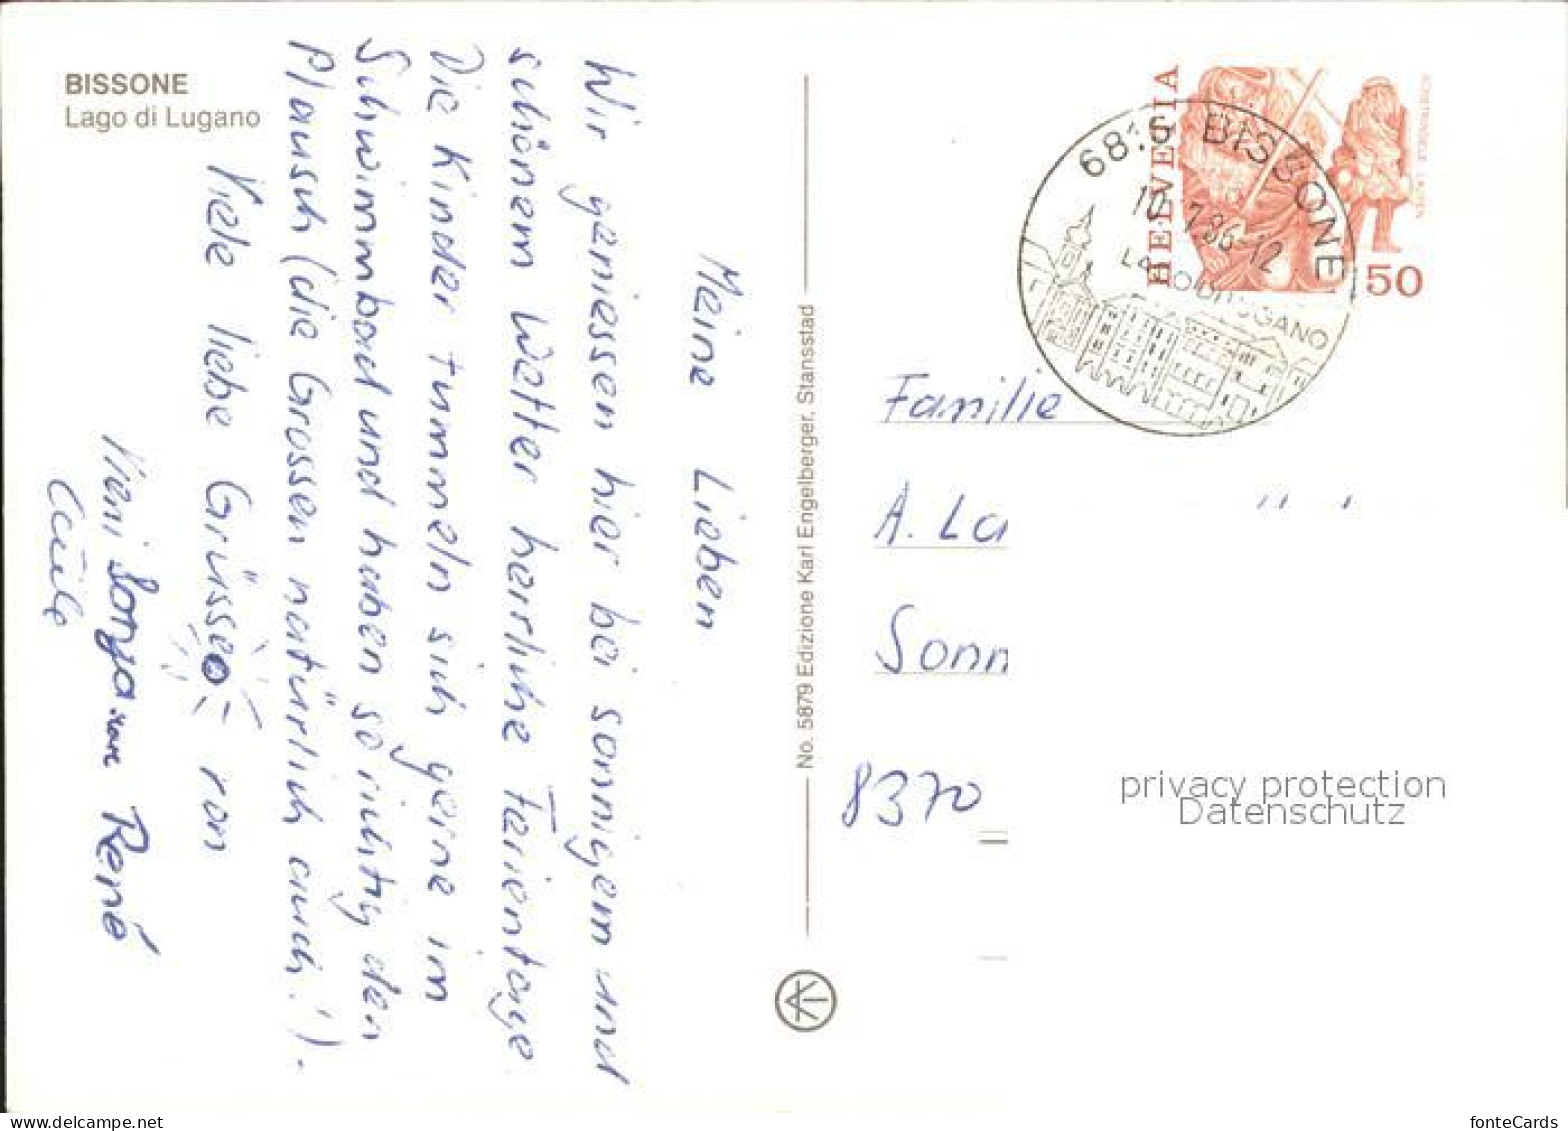 BISSONE
Lago di Lugano
Meine Lieben
Wir geniessen hier bei sonnigem und
schönem Wetter herrliche Ferientage
Die Kinder tummeln sich gerne im
Schwimmbad und haben so richtig den
Plausch (die Grossen natürlich auch!).
Viele liebe Grüsse von
Sonja René
No. 5879 Edizione Karl Engelberger, Stansstad
HELVETIA
50
6816 BISSONE
10.7.86-12
LAGO DI LUGANO
Familie
A. La
Sonn
8370
privacy protection
Datenschutz
www.delcampe.net
fonteCards